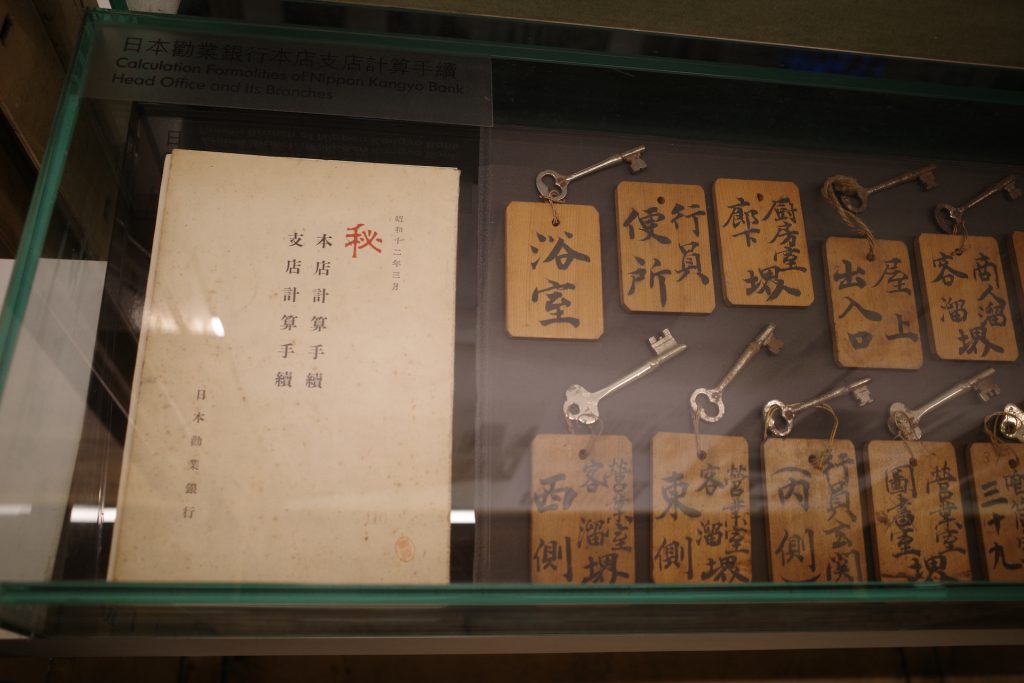 日本勸業銀行本店支店計算手續
Calculation Formalities of Nippon Kangyo Bank
Head Office and Its Branches
昭和十二年三月
秘
本店計算手續
支店計算手續
日本勸業銀行
浴室
行員
便所
厨房室
廊下堺
屋上
出入口
商人溜
客溜堺
營業室
客溜堺
西側
營業室
客溜堺
東側
行員玄関
(内側)
營業室
圖書室堺
三十九